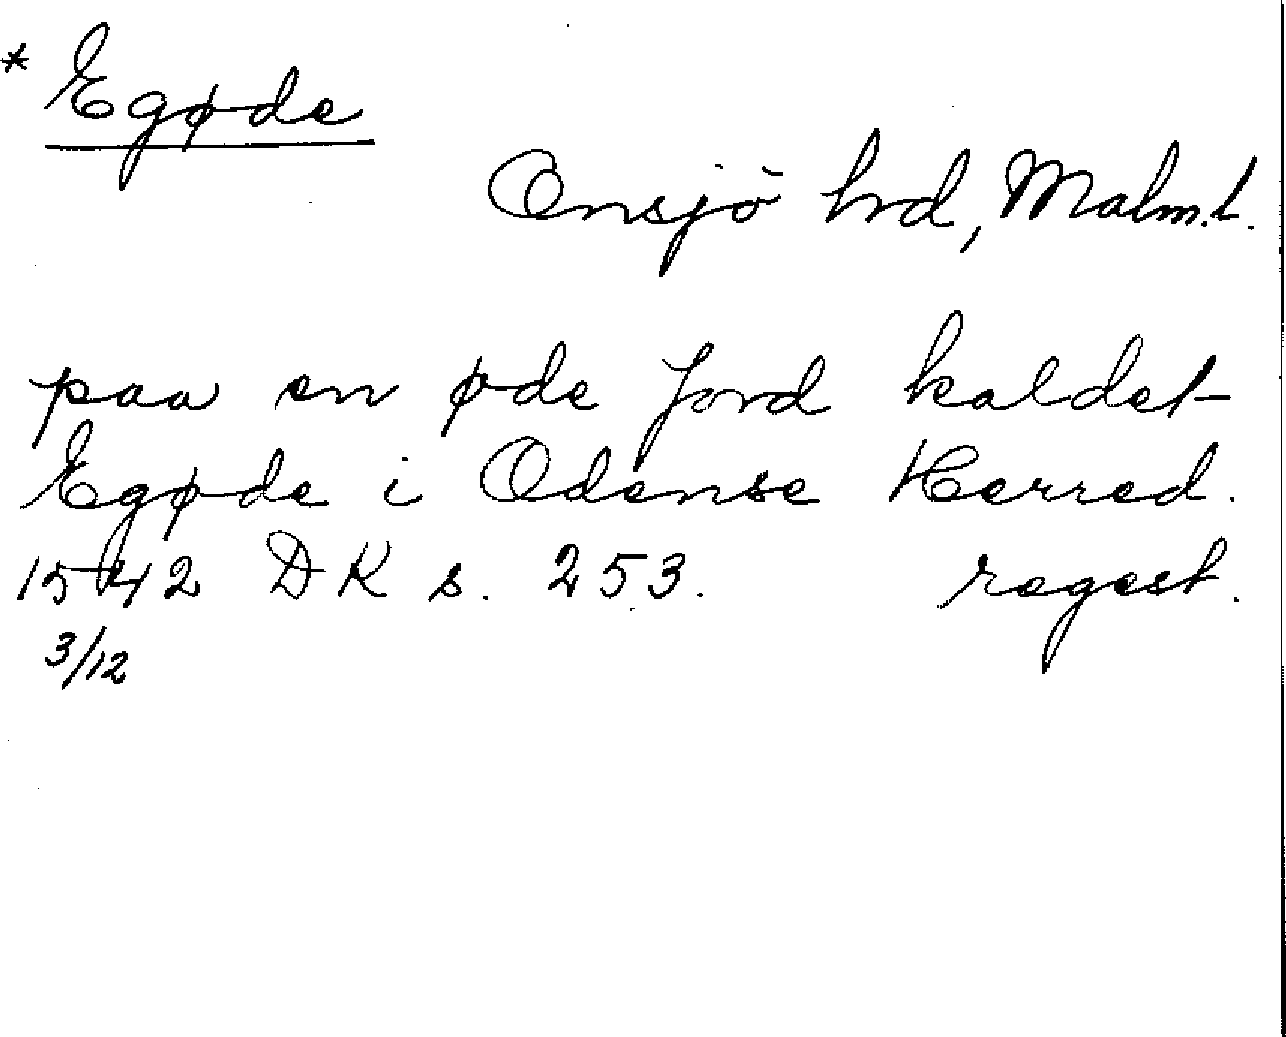 * Egøde
Onsjö hrd, Malm.l.
paa en øde Jord kaldet
Egøde i Odense Herred.
1542 DK s. 253. regest.
3/12